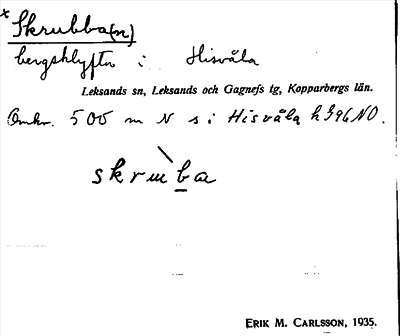 x Skrubba(n)
bergsklyfta i Hisvåla
Leksands sn, Leksands och Gagnefs tg, Kopparbergs län.
Omkr. 500 m N s i Hisvåla h 396 NO.
skruba
ERIK M. CARLSSON, 1935.